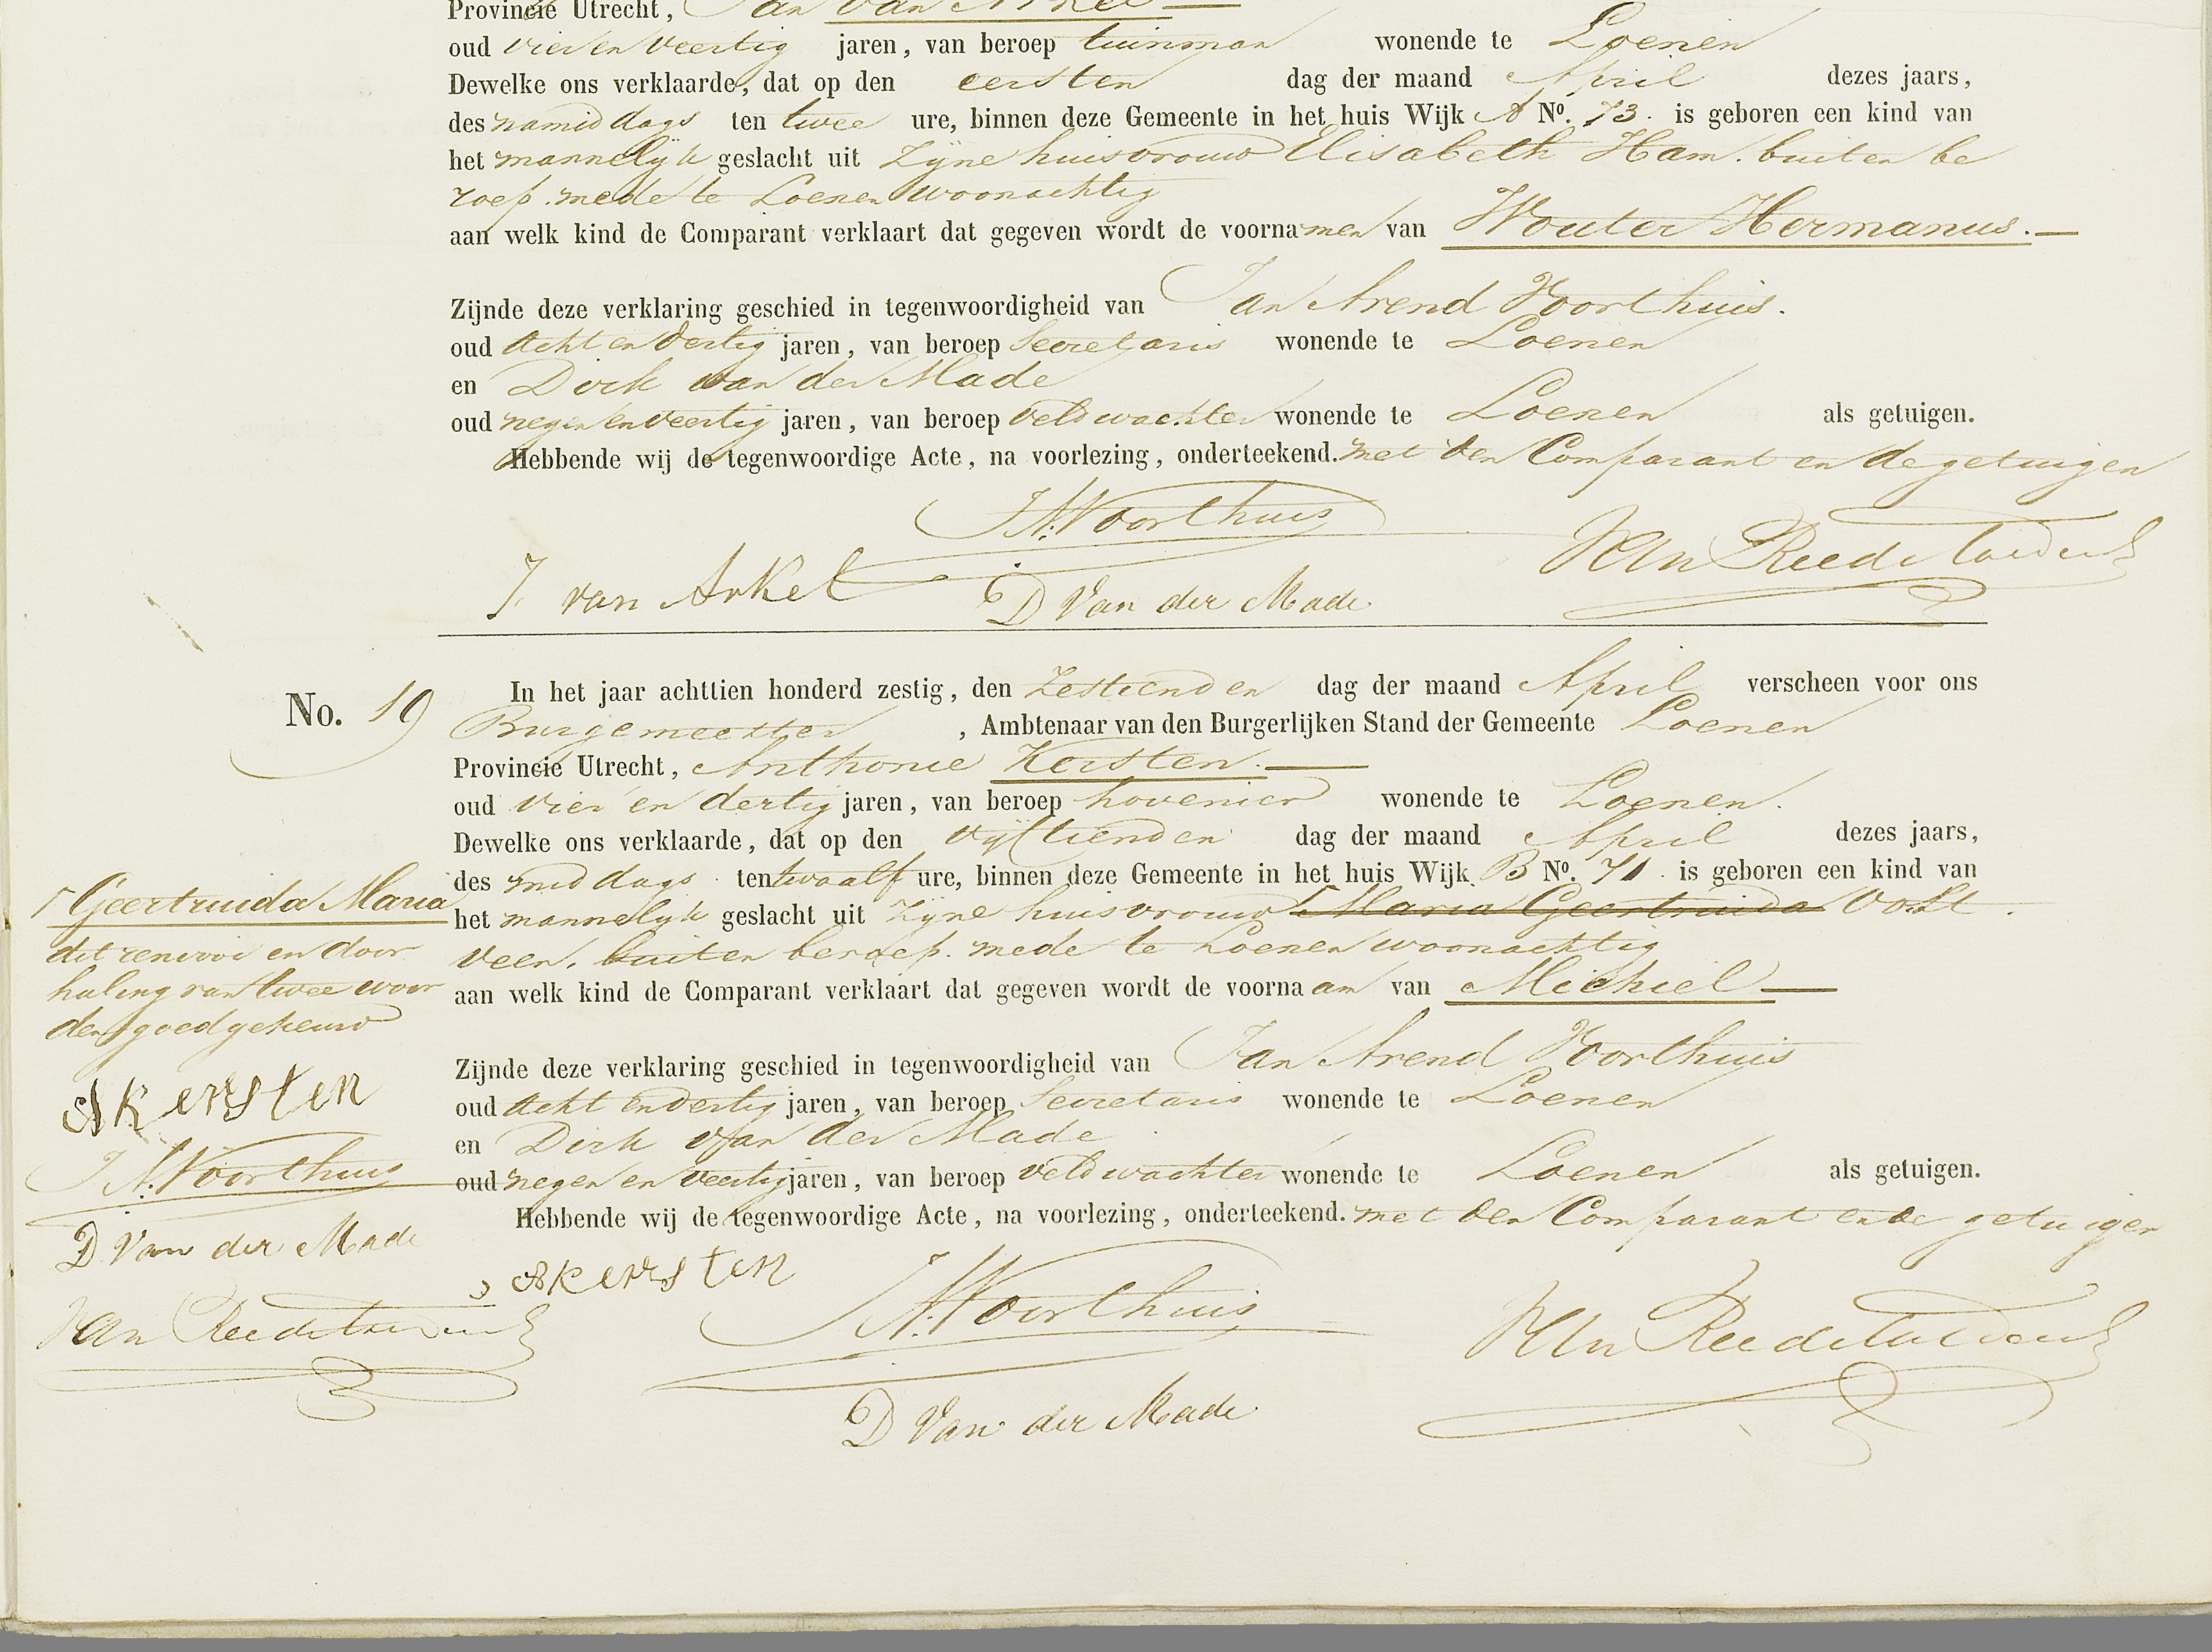 Provincie Utrecht, Jan van Arkel
oud vier en veertig jaren, van beroep tuinman wonende te Loenen
Dewelke ons verklaarde, dat op den eersten dag der maand April dezes jaars,
des namiddags ten twee ure, binnen deze Gemeente in het huis Wijk A No. 73. is geboren een kind van
het mannelijk geslacht uit zijne huisvrouw Elisabeth Ham. buiten be
roep. mede te Loenen woonachtig
aan welk kind de Comparant verklaart dat gegeven wordt de voornamen van Wouter Hermanus.
Zijnde deze verklaring geschied in tegenwoordigheid van Jan Arend Voorthuis.
oud acht en dertig jaren, van beroep Secretaris wonende te Loenen
en Dirk van der Made
oud negen en veertig jaren, van beroep veldwachter wonende te Loenen als getuigen.
Hebbende wij de tegenwoordige Acte, na voorlezing, onderteekend. met den Comparant en de getuigen
JA. Voorthuis
J. van Arkel D Van der Made
No. 19 In het jaar achttien honderd zestig, den zestienden dag der maand April verscheen voor ons
Burgemeester, Ambtenaar van den Burgerlijken Stand der Gemeente Loenen
Provincie Utrecht, Anthonie Kersten.
oud vier en dertig jaren, van beroep hovenier wonende te Loenen.
Dewelke ons verklaarde, dat op den vijftienden dag der maand April dezes jaars,
des middags ten twaalf ure, binnen deze Gemeente in het huis Wijk B No. 71. is geboren een kind van
het mannelijk geslacht uit zijne huisvrouw Maria Geertruida Oost.
veen, buiten beroep. mede te Loenen woonachtig
aan welk kind de Comparant verklaart dat gegeven wordt de voornaam van Michiel
Zijnde deze verklaring geschied in tegenwoordigheid van Jan Arend Voorthuis
oud acht en dertig jaren, van beroep Secretaris wonende te Loenen
en Dirk van der Made
oud negen en veertig jaren, van beroep veldwachter wonende te Loenen als getuigen.
Hebbende wij de tegenwoordige Acte, na voorlezing, onderteekend. met den Comparant en de getuigen
AKersten
JA. Voorthuis
D Van der Made
Geertruida Maria
dit renvooi en door
haling van twee woor
den goedgekeurd
AKersten
JA. Voorthuis
D Van der Made